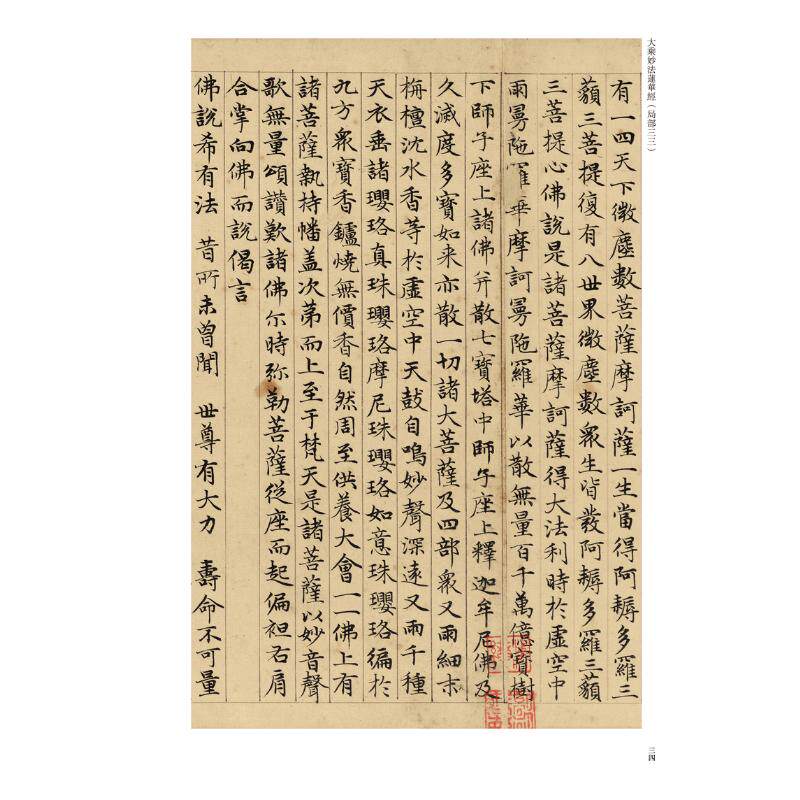 大乘妙法蓮華經（局部三三）
有一四天下微塵數菩薩摩訶薩一生當得阿耨多羅三
藐三菩提復有八世界微塵數眾生皆發阿耨多羅三藐
三菩提心佛說是諸菩薩摩訶薩得大法利時於虛空中
雨曼陁羅華摩訶曼陁羅華以散無量百千萬億寶樹
下師子座上諸佛并散七寶塔中師子座上釋迦牟尼佛及
久滅度多寶如来亦散一切諸大菩薩及四部眾又雨細末
栴檀沈水香等於虛空中天鼓自鳴妙聲深遠又雨千種
天衣垂諸瓔珞真珠瓔珞摩尼珠瓔珞如意珠瓔珞遍於
九方眾寶香鑪燒無價香自然周至供養大會一一佛上有
諸菩薩執持幡盖次苐而上至于梵天是諸菩薩以妙音聲
歌無量頌讚歎諸佛尒時弥勒菩薩從座而起偏袒右肩
合掌向佛而說偈言
佛說希有法 昔所未曾聞 世尊有大力 壽命不可量
三四